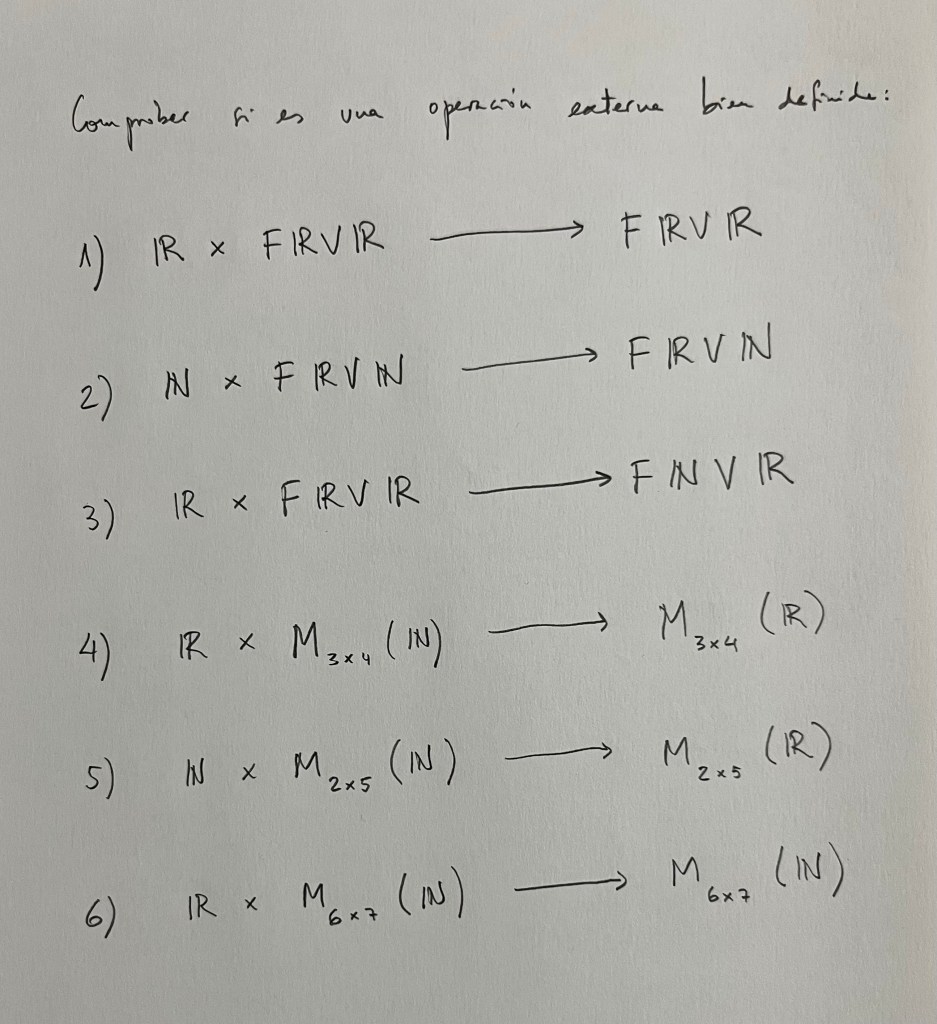 Comprobar si es una operación externa bien definida:
1) ℝ × FℝVℝ ⟶ FℝVℝ
2) ℕ × FℝVℕ ⟶ FℝVℕ
3) ℝ × FℝVℝ ⟶ FℕVℝ
4) ℝ × M₃ₓ₄ (ℕ) ⟶ M₃ₓ₄ (ℝ)
5) ℕ × M₂ₓ₅ (ℕ) ⟶ M₂ₓ₅ (ℝ)
6) ℝ × M₆ₓ₇ (ℕ) ⟶ M₆ₓ₇ (ℕ)